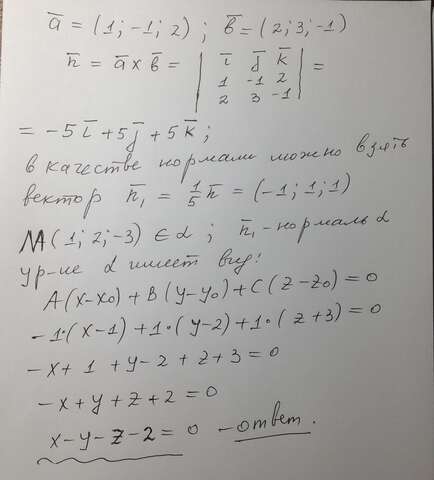 a̅ = (1; -1; 2) ; b̅ = (2; 3; -1)
n̅ = a̅ x b̅ = | i̅ j̅ k̅ | =
| 1 -1 2 |
| 2 3 -1 |
= -5 i̅ + 5 j̅ + 5 k̅ ;
в качестве нормали можно взять
вектор n̅₁ = 1/5 n̅ = (-1; 1; 1)
M(1; 2; -3) ∈ α ; n̅₁ - нормаль α
ур-ие α имеет вид:
A(x-x₀) + B(y-y₀) + C(z-z₀) = 0
-1·(x-1) + 1·(y-2) + 1·(z+3) = 0
-x + 1 + y - 2 + z + 3 = 0
-x + y + z + 2 = 0
x - y - z - 2 = 0 - ответ.